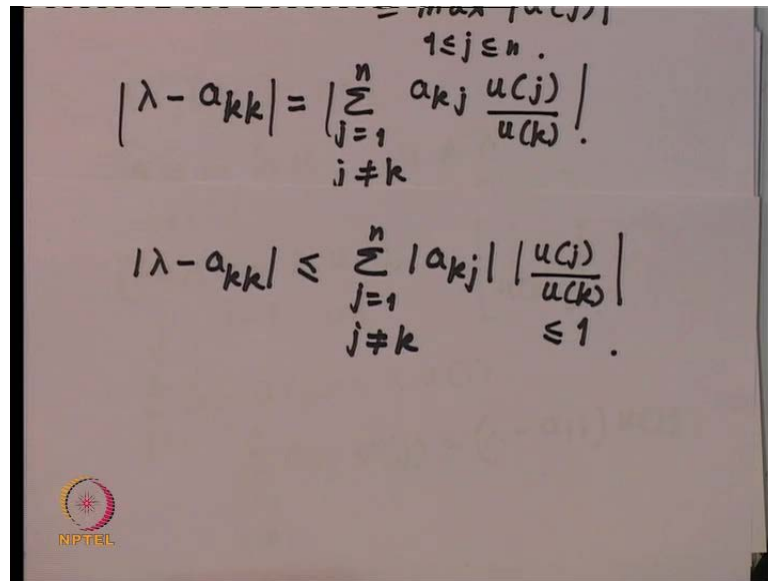 = max |u(j)|
1≤j≤n .
|λ - a_kk| = |∑_{j=1, j≠k}^{n} a_kj u(j)/u(k)| .
|λ - a_kk| ≤ ∑_{j=1, j≠k}^{n} |a_kj| |u(j)/u(k)|
≤ 1 .
NPTEL